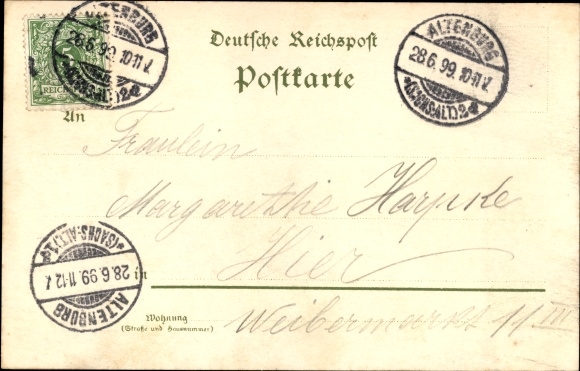 REICH
ALTENBURG
28.6.99. 10-11 V.
*(SACHS:ALT.)2d
Deutsche Reichspost
Postkarte
ALTENBURG
28.6.99. 10-11 V.
*(SACHS:ALT.)2d
An
Fräulein
Margarethe Harpke
in Hier
ALTENBURG
28.6.99. 11-12 V.
*(SACHS:ALT.)1
Wohnung
(Straße und Hausnummer)
Weibermarkt 11 III